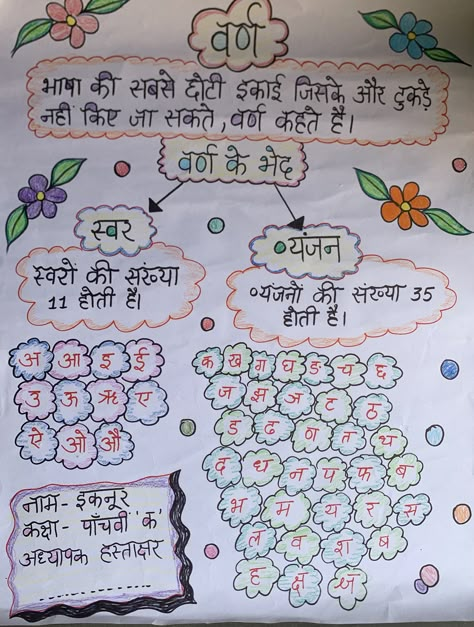 वर्ण
भाषा की सबसे छोटी इकाई जिसके और टुकड़े
नहीं किए जा सकते, वर्ण कहते हैं।
वर्ण के भेद
स्वर
स्वरों की संख्या
11 होती है।
अ आ इ ई
उ ऊ ऋ ए
ऐ ओ औ
व्यंजन
व्यंजनों की संख्या 35
होती है।
क ख ग घ ङ च छ
ज झ ञ ट ठ
ड ढ ण त थ
द ध न प फ ब
भ म य र स
ल व श ष
ह क्ष
नाम- इकनूर
कक्षा- पाँचवी 'क'
अध्यापक हस्ताक्षर